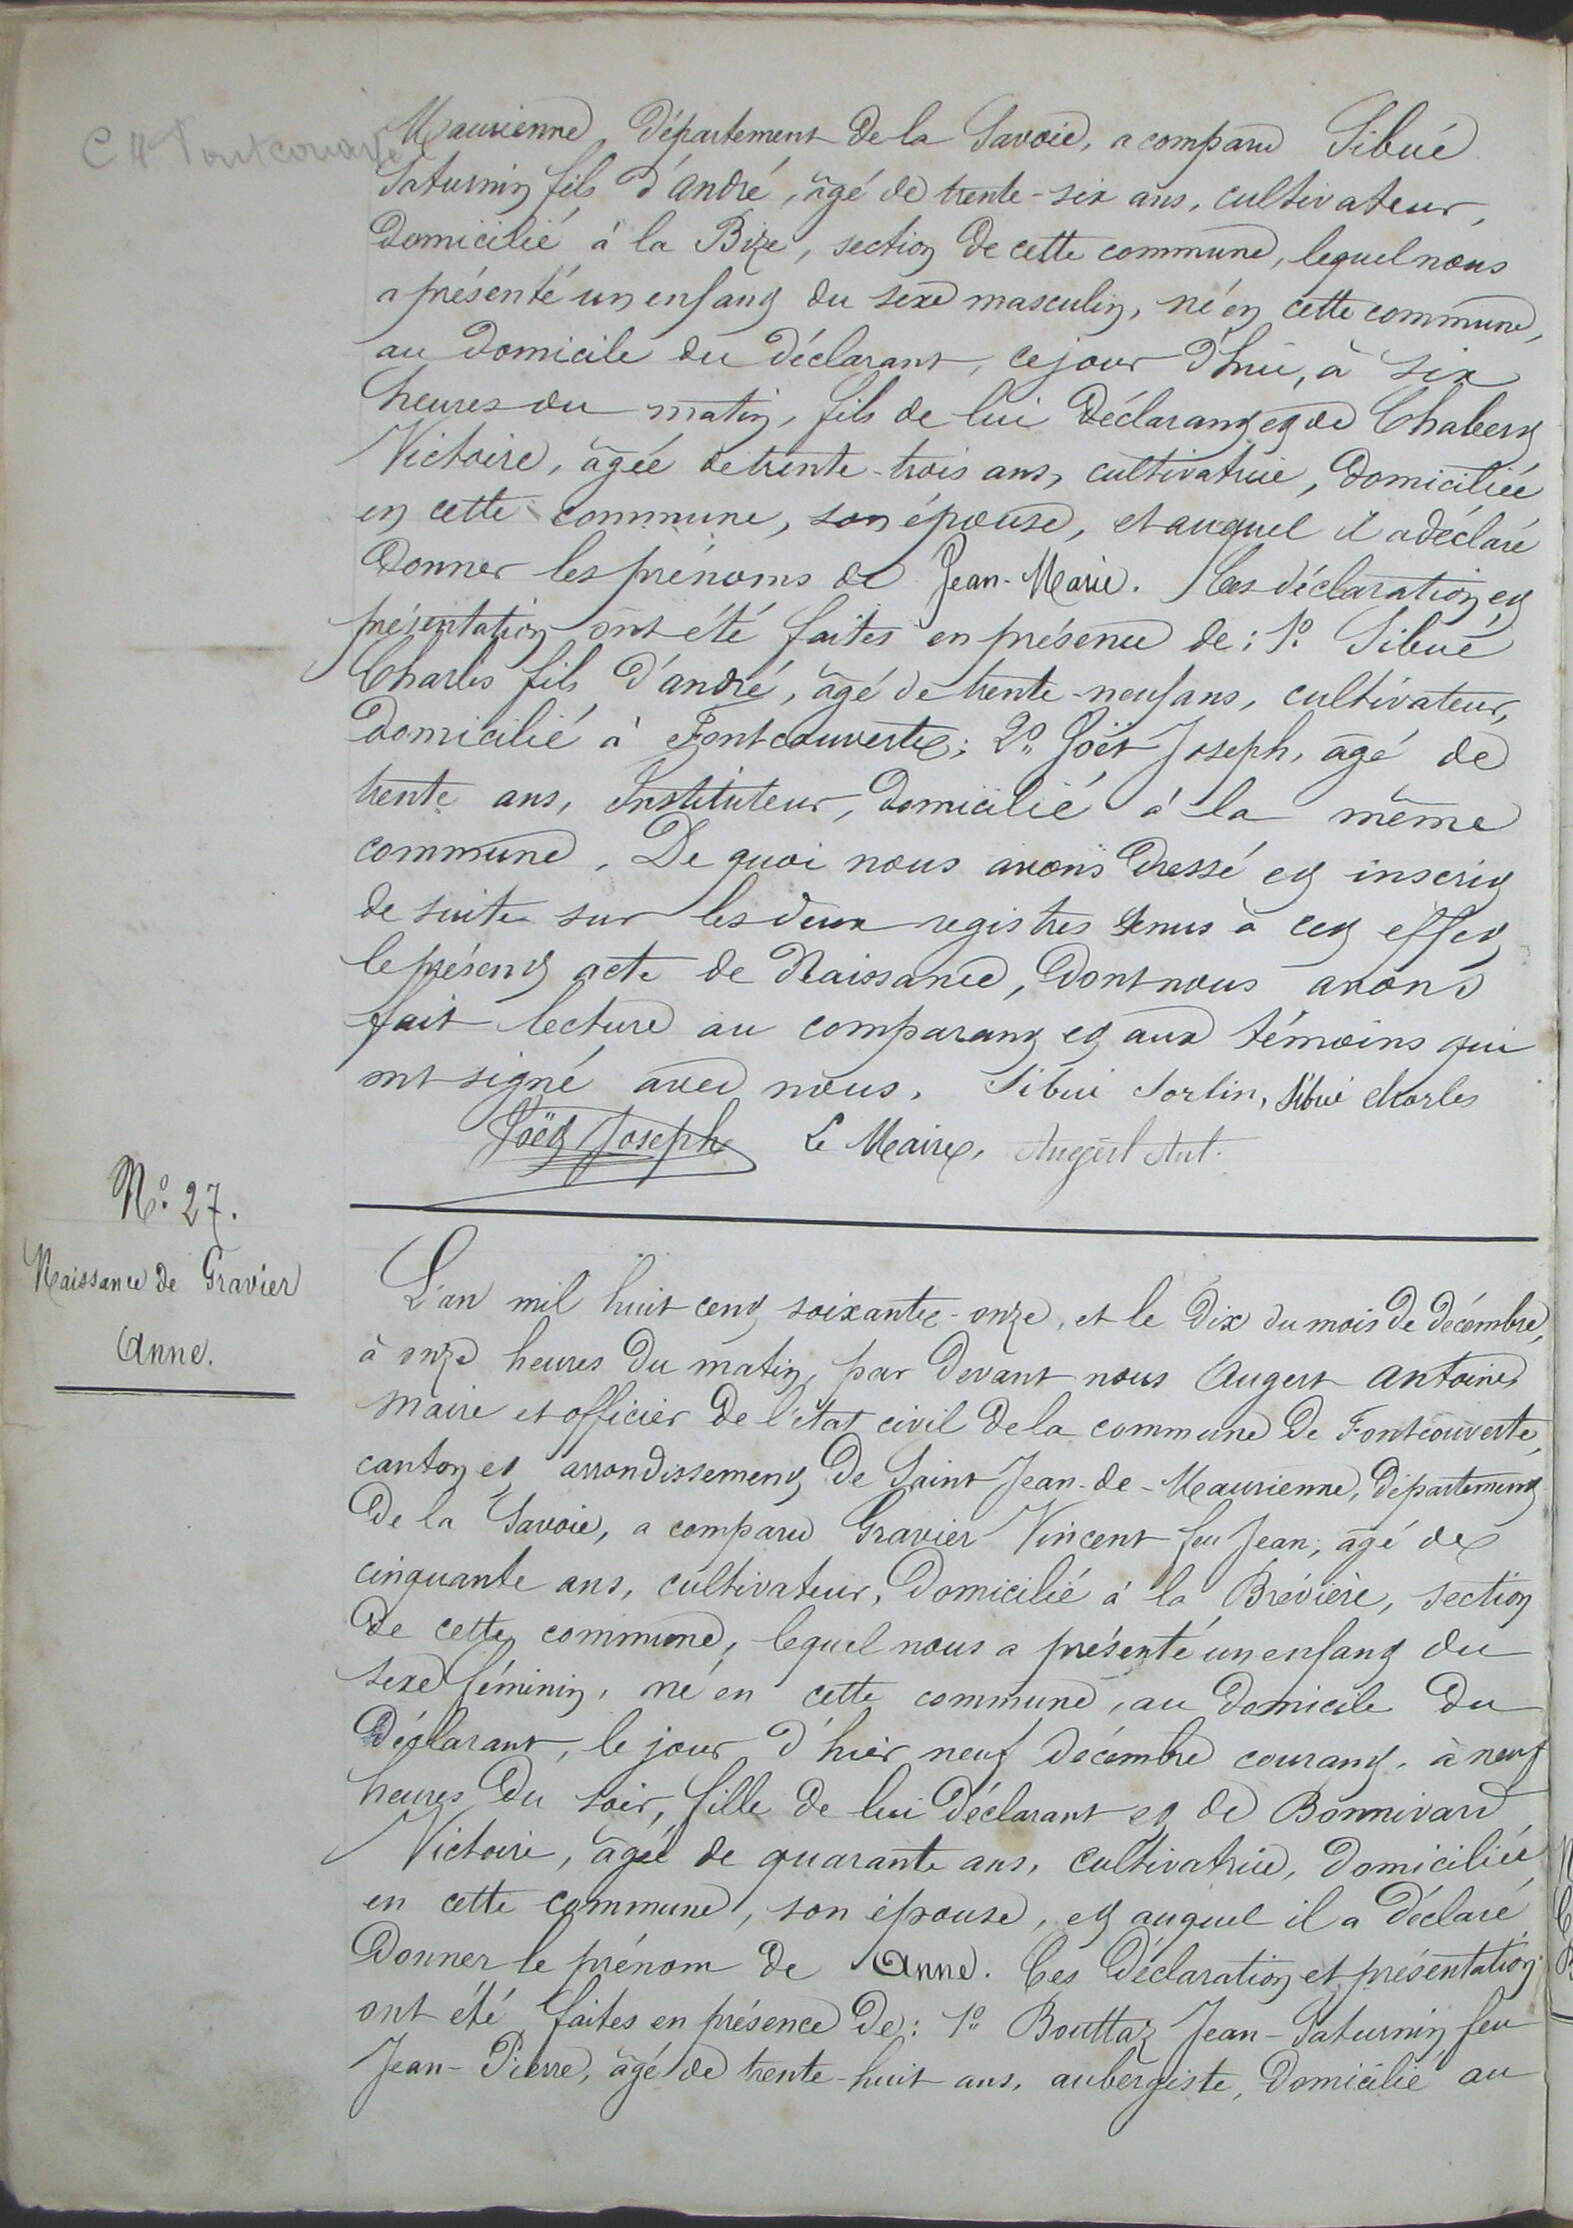 Maurienne, département de la Savoie, a comparu Sibué
Saturnin fils d'André, âgé de trente-six ans, cultivateur,
domicilié à la Bize, section de cette commune, lequel nous
a présenté un enfant du sexe masculin, né en cette commune,
au domicile du déclarant, ce jour d'hui, à six
heures du matin, fils de lui déclarant et de Chabert
Victoire, âgée de trente-trois ans, cultivatrice, domiciliée
en cette commune, son épouse, et auquel il a déclaré
donner les prénoms de Jean-Marie. Ces déclaration et
présentation ont été faites en présence de: 1º Sibué
Charles fils d'André, âgé de trente-neuf ans, cultivateur,
domicilié à Fontcouverte; 2º Joët Joseph, âgé de
trente ans, Instituteur, domicilié à la même
commune. De quoi nous avons dressé et inscrit
de suite sur les deux registres tenus à cet effet
le présent acte de Naissance, dont nous avons
fait lecture au comparant et aux témoins qui
ont signé avec nous. Sibué Sorlin, Sibué Charles
Joët Joseph Le Maire, Augert Ant.
Nº 27.
Naissance de Gravier
Anne.
L'an mil huit cent soixante-onze, et le dix du mois de décembre,
à onze heures du matin, par devant nous Augert Antoine
Maire et officier de l'état civil de la commune de Fontcouverte,
canton et arrondissement de Saint-Jean-de-Maurienne, département
de la Savoie, a comparu Gravier Vincent feu Jean, âgé de
cinquante ans, cultivateur, domicilié à la Brévière, section
de cette commune, lequel nous a présenté un enfant du
sexe féminin, né en cette commune, au domicile du
déclarant, le jour d'hier neuf décembre courant, à neuf
heures du soir, fille de lui déclarant et de Bonnivard
Victoire, âgée de quarante ans, cultivatrice, domiciliée
en cette commune, son épouse, et auquel il a déclaré
donner le prénom de Anne. Ces déclaration et présentation
ont été faites en présence de: 1º Bouttaz Jean-Saturnin feu
Jean-Pierre, âgé de trente-huit ans, aubergiste, domicilié au